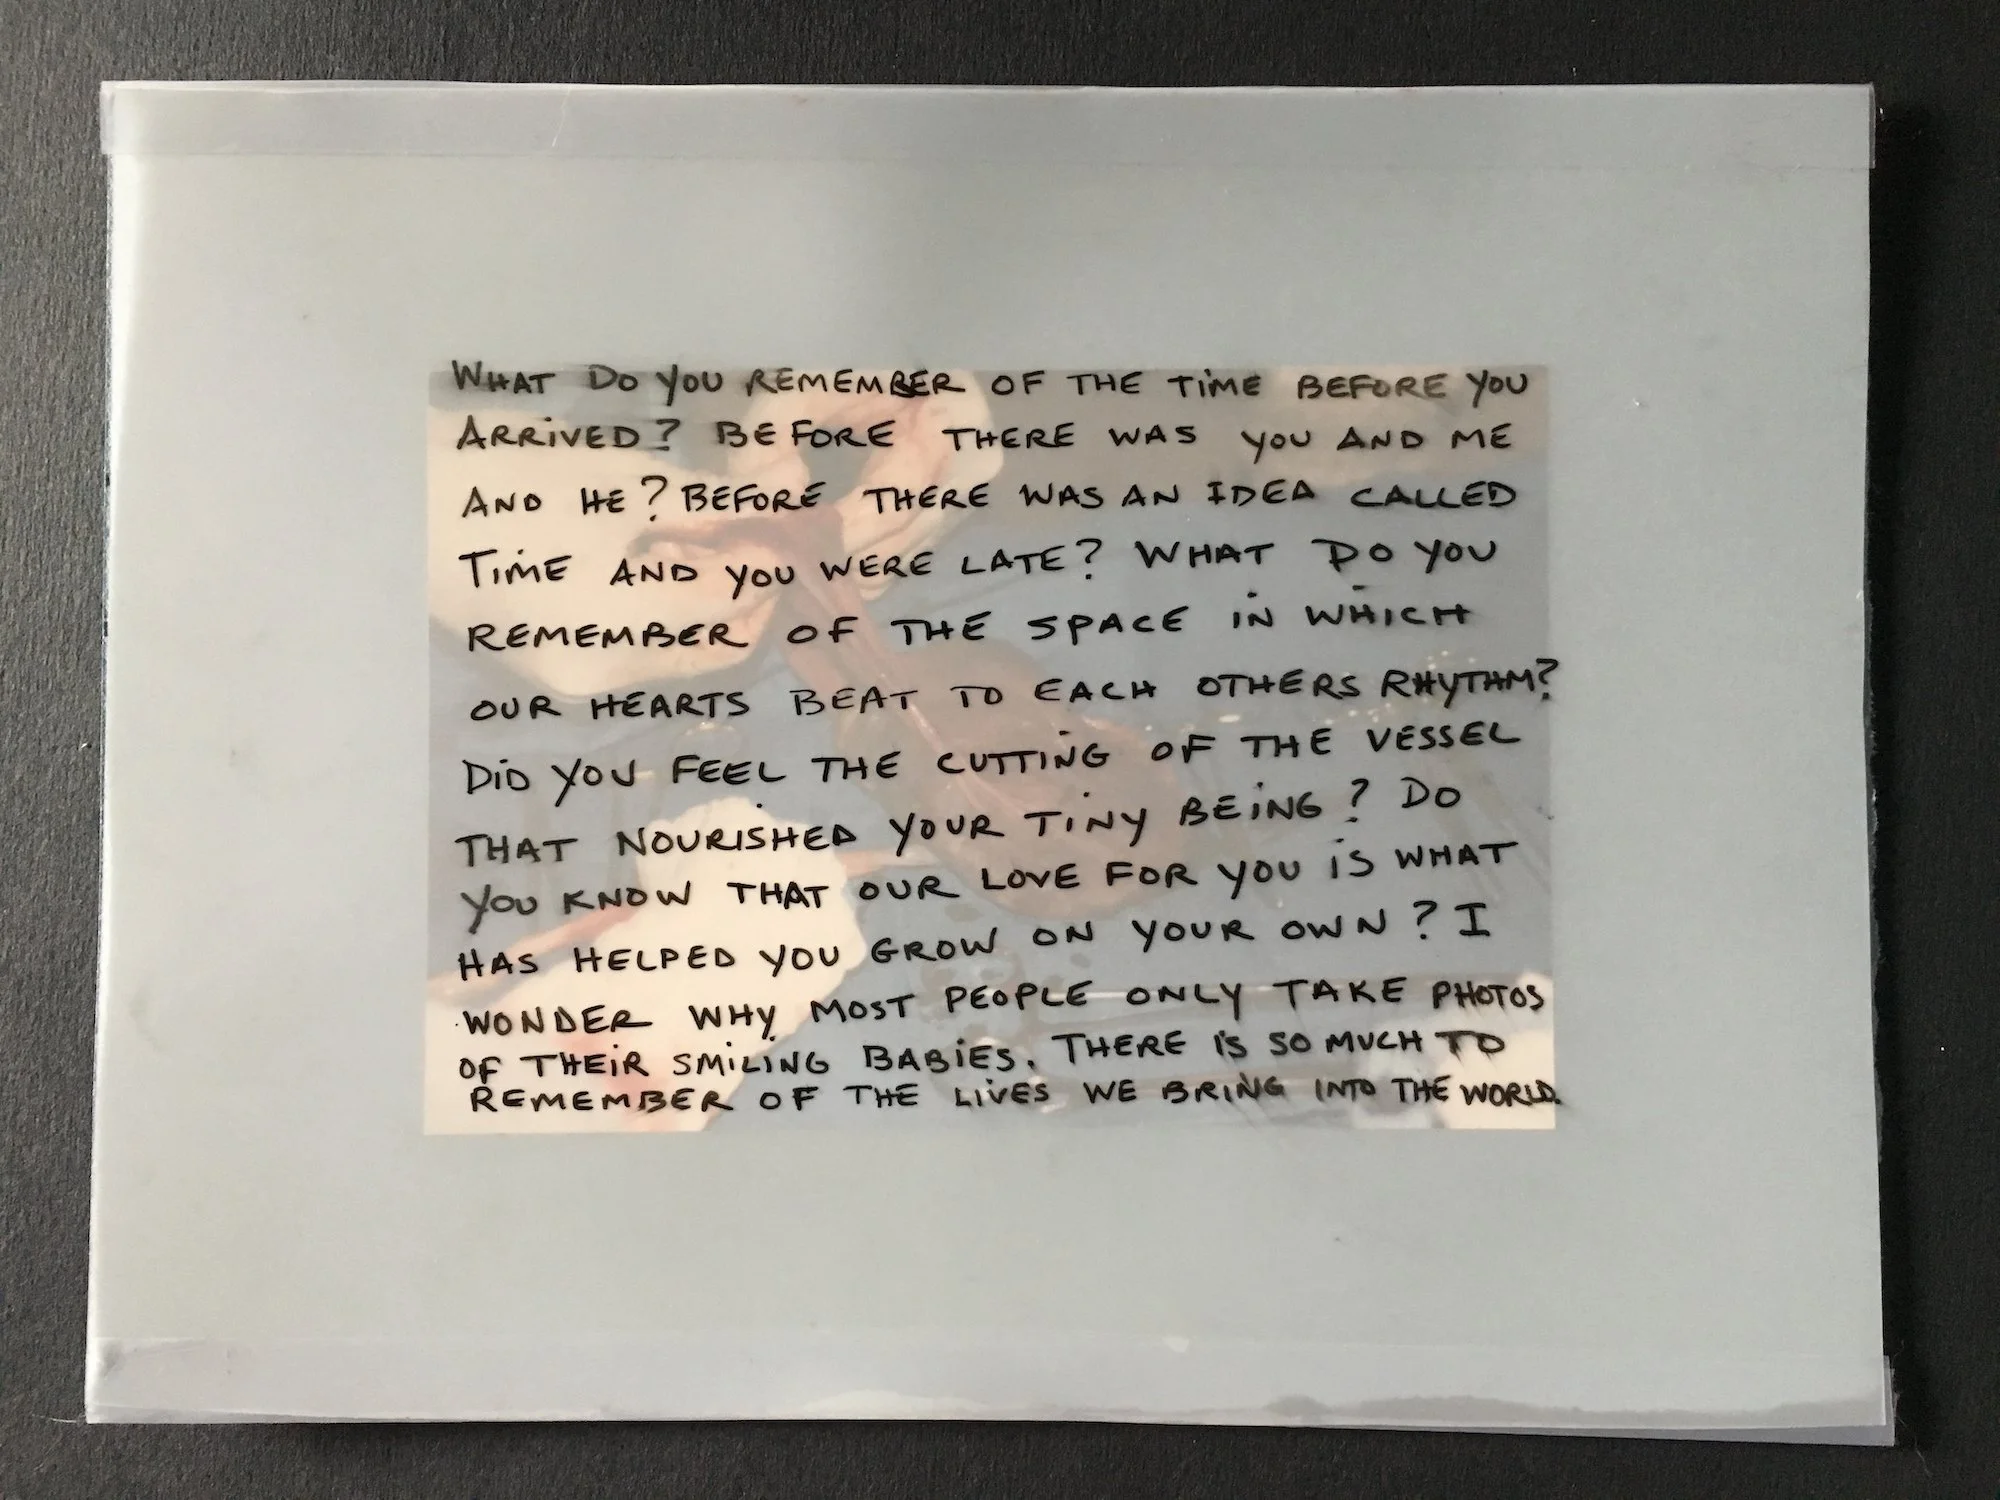 WHAT DO YOU REMEMBER OF THE TIME BEFORE YOU
ARRIVED? BEFORE THERE WAS YOU AND ME
AND HE? BEFORE THERE WAS AN IDEA CALLED
TIME AND YOU WERE LATE? WHAT DO YOU
REMEMBER OF THE SPACE IN WHICH
OUR HEARTS BEAT TO EACH OTHERS RHYTHM?
DID YOU FEEL THE CUTTING OF THE VESSEL
THAT NOURISHED YOUR TINY BEING? DO
YOU KNOW THAT OUR LOVE FOR YOU IS WHAT
HAS HELPED YOU GROW ON YOUR OWN? I
WONDER WHY MOST PEOPLE ONLY TAKE PHOTOS
OF THEIR SMILING BABIES. THERE IS SO MUCH TO
REMEMBER OF THE LIVES WE BRING INTO THE WORLD.